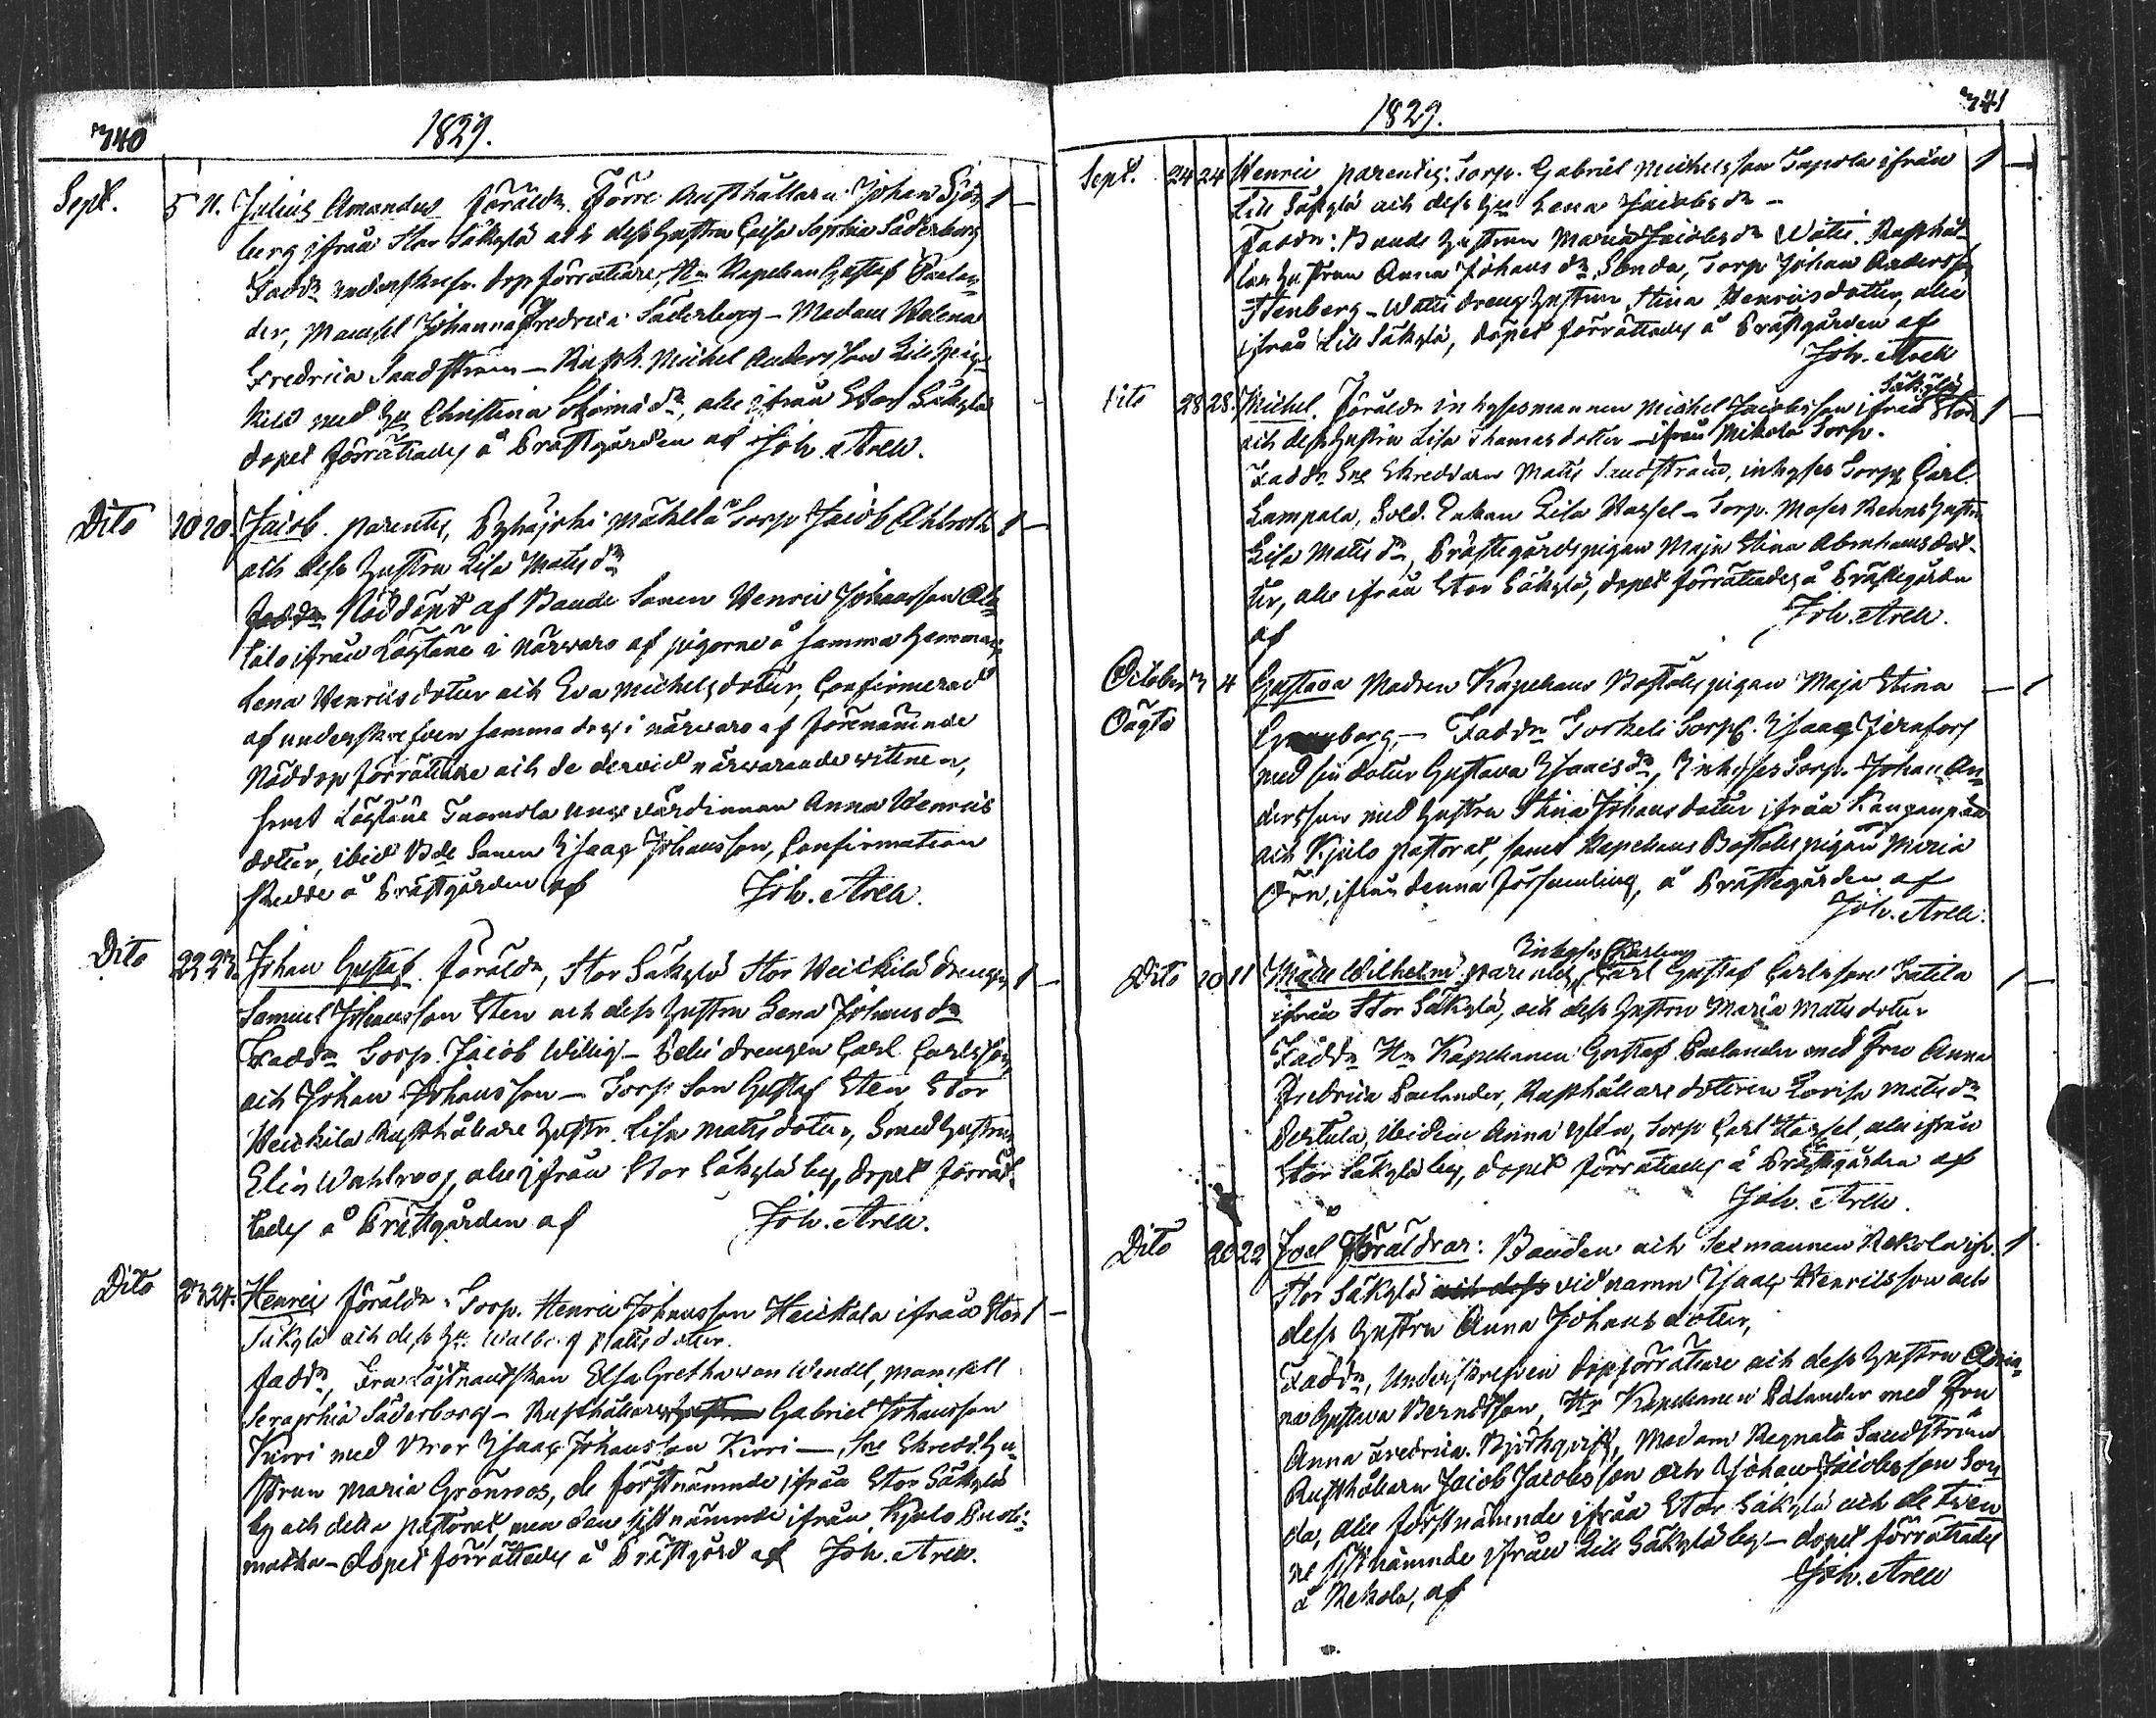 340
1829.
Sept. 5 11. Julius Amandus föräldr. Förre Rusthållaren Johan Sjö- 1 —
berg ifrån Stor Säkylä och dess hustru Caisa Sophia Söderborg
Faddr underskrefn. dop förrättare, Hr Kapellan Gustaf Paelan-
der, Mamsel Johanna Fredrica Söderborg — Madam Helena
Fredrica Sandström — Rusth. Michel Andersson Lill Hei-
kilä med hu Christina Thomä dr, alla ifrån Stor Säkylä
dopet förrättades å Prästgården af Joh. Arell.
Dito 20 20. Jacob. parentes, Pyhäjoki Mäkelä Torp. Jacob Ahlroth 1 —
och dess hustru Lisa Mats dr
Faddr Nöddöpt af Bonde Sonen Henric Johansson
talo ifrån Löytäne i närwaro af pigorna å samma hemman
Lena Henricsdotter och Eva Michelsdotter, Confirmerad
af underskrefven samma dag i närwaro af förenämnde
Nöddop förrättare och de dervid närwarande vittnen,
samt Löytäne Tuomola unga värdinnan Anna Henrics
dotter, ibid Bde Sonen Isaac Johansson, Confirmation
skedde å Prästgården af Joh. Arell.
Dito 22 23. Johan Gustaf. föräldr, Stor Säkylä Stor Heickilä drengen 1 —
Samuel Johansson Sten och dess hustru Lena Johans dr
Faddr Torp. Jacob Willig — drengen Carl Carlsson,
och Johan Johansson — Torp Son Gustaf Sten, Stor
Heickilä Rusthållare hustr. Lisa Matsdotter, Smed hustrun
Elin Wahlroos, alla ifrån Stor Säkylä by, dopet förrät-
tades å Prästgården af Joh. Arell.
Dito 23 24. Henric föräldr. Torp. Henric Johansson Heickola ifrån Stor 1 —
Säkylä och dess hu. Walborg Matsdotter.
Faddr, Fru Löjtnantskan Elsa Gretha von Wendel, Mamsell
Seraphia Söderborg — Rusthållaren hustrun Gabriel Johansson
Kirri med Bror Isaac Johansson Kirri — Sne Skredd. hu-
strun Maria Grönroos, de förstnämnde ifrån Stor Säkylä
by och detta pastorat, men den sistnämnde ifrån Kjulo
— dopet förrättades å Prästgård af Joh. Arell.
1829.
341
Sept. 24 24 Henric parentes: Torp. Gabriel Michelsson Tapola ifrån 1 —
Lill Säkylä och dess hu Lena Jacobs dr —
Faddr: Bonde hustrun Maria Jacobs dr Watti. Rusthål-
lar hustrun Anna Johans dr Sonda, Torp Johan Andersson
Stenberg — Watti dreng hustrun Stina Henricsdotter, alla
ifrån Lill Säkylä, dopet förrättades å Prästgården af
Joh. Arell
Dito 28 28. Michel. Föräldr inhysesmannen Michel Jacobsson ifrån Stor Säkylä 1 —
och dess hustru Lisa Thomasdotter — ifrån Mikola Torp.
Faddr Sne Skreddaren Mats Sandström, inhyses Torp. Carl
Lampola, Sold. Enkan Lisa Hassel — Torp. Moses Rehns hustru
Lisa Mats dr, Prästegårdspigan Maja Stina Abrahamsdot-
ter, alla ifrån Stor Säkylä, dopet förrättades å Prästegården
af Joh. Arell.
October 3 4 Gustava Modren Kapellans Boställspigan Maja Stina — 1
Oägta berg, — Faddr Torp. Isaac Jernfors
med sin dotter Gustava Isaacs dr, Inhyses Torp. Johan An-
dersson med hustru Stina Johansdotter ifrån Kanganpää
och Kjulo pastorat, samt Kapellans Boställspigan Maria
Örn, ifrån denna församling, å Prästegården af
Joh. Arell.
Dito 10 11 Mathe Wilhelm. parentes, Inhyses Karlen Carl Gustaf Carlsson Tatila 1 —
ifrån Stor Säkylä, och dess hustru Maria Matsdotter
Faddr Hr Kapellanen Gustaf Paelander med Fru Anna
Fredrica Paelander, Rusthållare dottren Lovisa Mats dr
Pertula, ibidem Anna, Torp Carl Hassel, alla ifrån
Stor Säkylä by, dopet förrättades å Prästgården af
Joh. Arell.
Dito 20 22 Joel Föräldrar: Bonden och Sexmannen Rekola ifr. 1
Stor Säkylä och dess vid namn Isaac Henricsson och
dess hustru Anna Johansdotter,
Faddr, Underskrefven dopförrättare och dess hustru
Gustava Berndtson, Hr Kapellanen Paelander med Fru
Anna Fredrica Björkqvist, Madam Regnata Sandström
Rusthållarn Jacob Jacobsson och Johan Jacobsson Son-
da, alla förstnämnde ifrån Stor Säkylä och de twen
ne sistnämnde ifrån Lill Säkylä by — dopet förrättades
å Rekola, af Joh. Arell